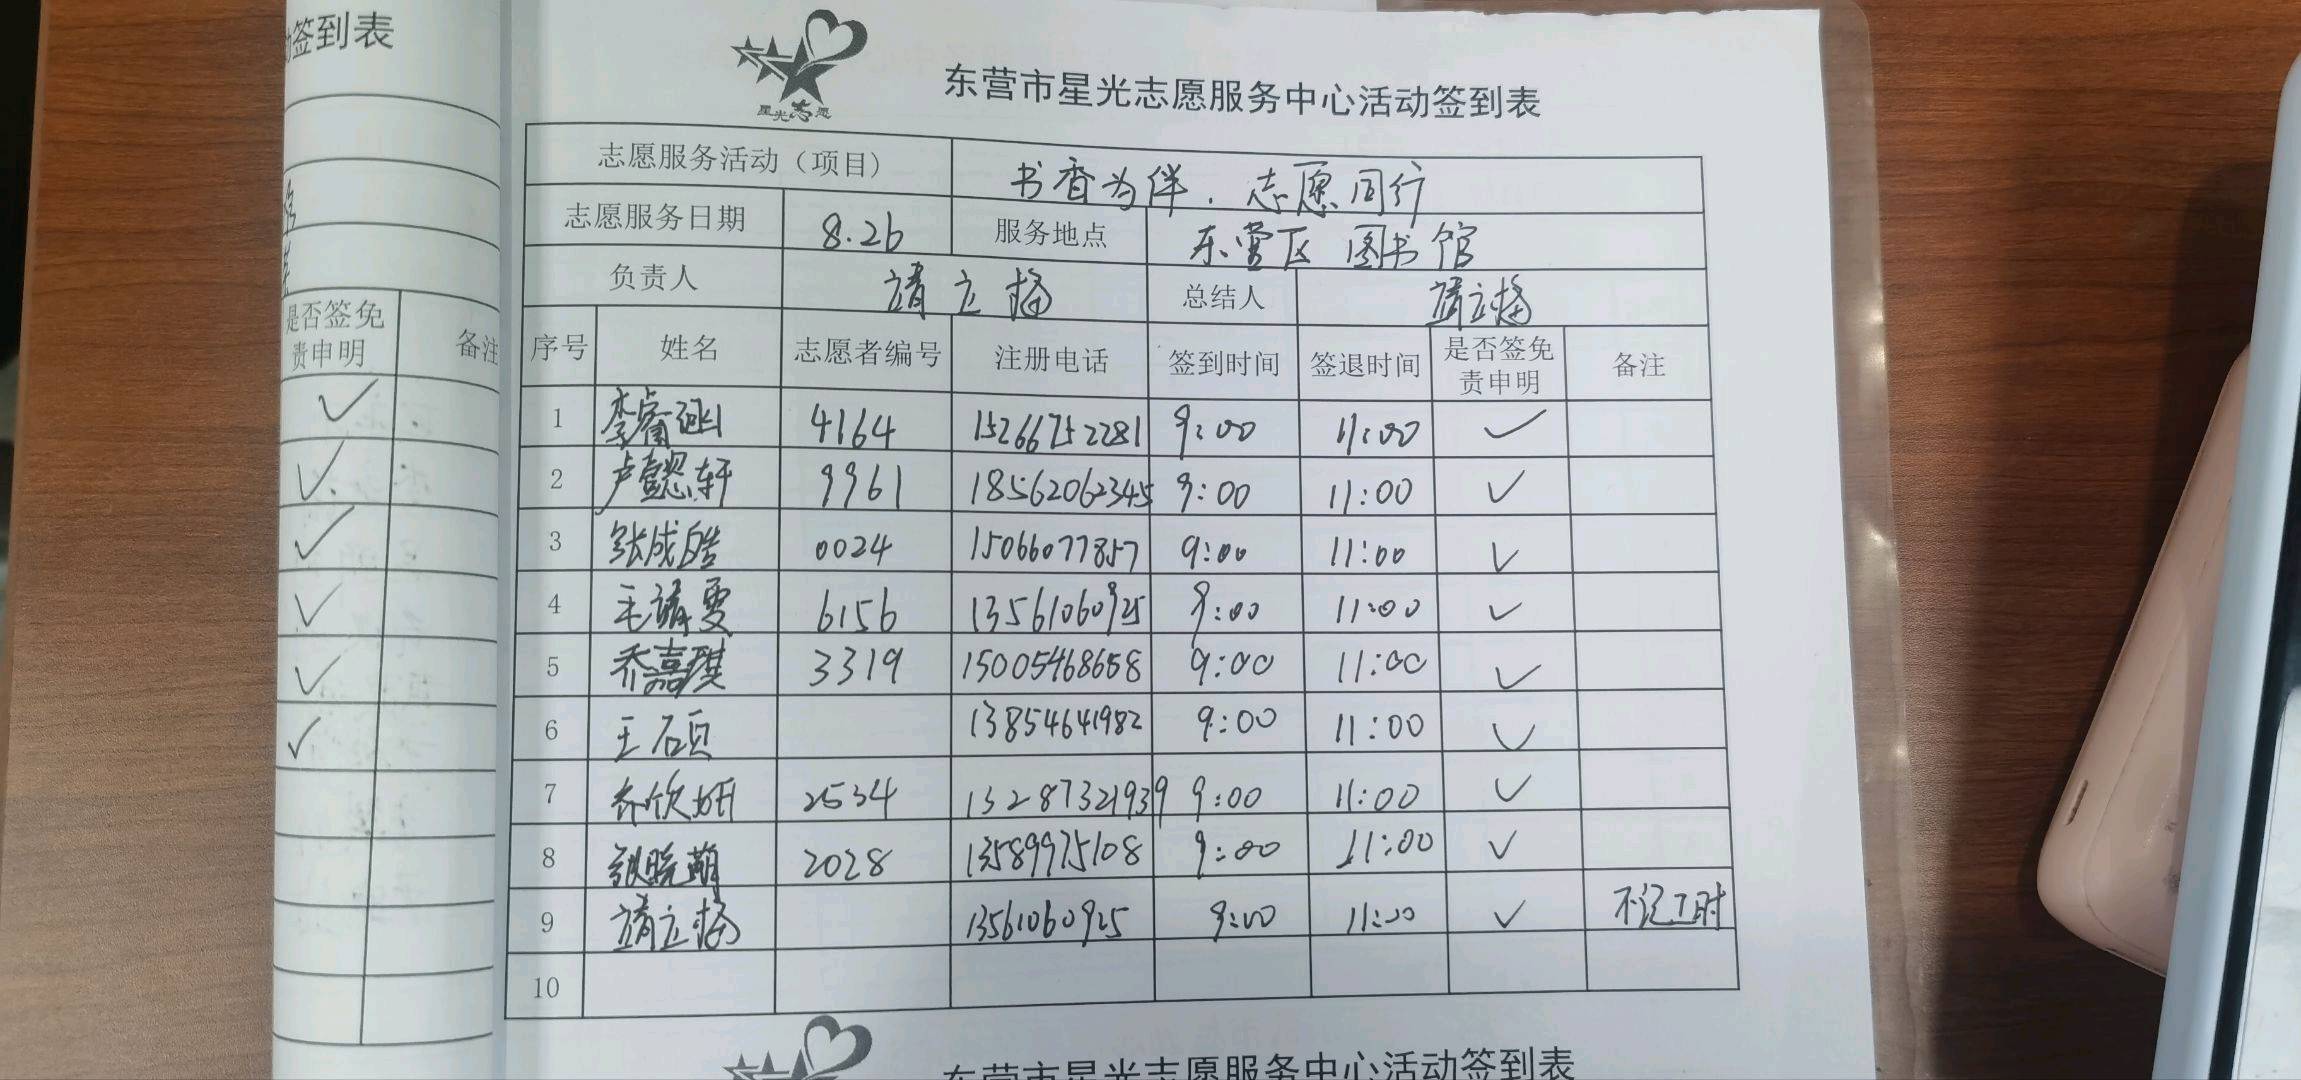 动签到表
是否签免
责申明
备注
星光志愿
东营市星光志愿服务中心活动签到表
志愿服务活动（项目） 书香为伴．志愿同行
志愿服务日期 8.26 服务地点 东营区 图书馆
负责人 靖立 总结人 靖立
序号 姓名 志愿者编号 注册电话 签到时间 签退时间 是否签免责申明 备注
1 李睿涵 4164 15266752281 9:00 11:00 ✓
2 卢懿轩 9961 18562062345 9:00 11:00 ✓
3 张成皓 0024 15066077857 9:00 11:00 ✓
4 毛靖雯 6156 13561060925 9:00 11:00 ✓
5 乔嘉琪 3319 15005468658 9:00 11:00 ✓
6 王硕 13854641982 9:00 11:00 ✓
7 乔欣妍 2534 13287321939 9:00 11:00 ✓
8 张晓萌 2028 13589975108 9:00 11:00 ✓
9 靖立 13561060925 9:00 11:00 ✓ 不记工时
10
东营市星光志愿服务中心活动签到表